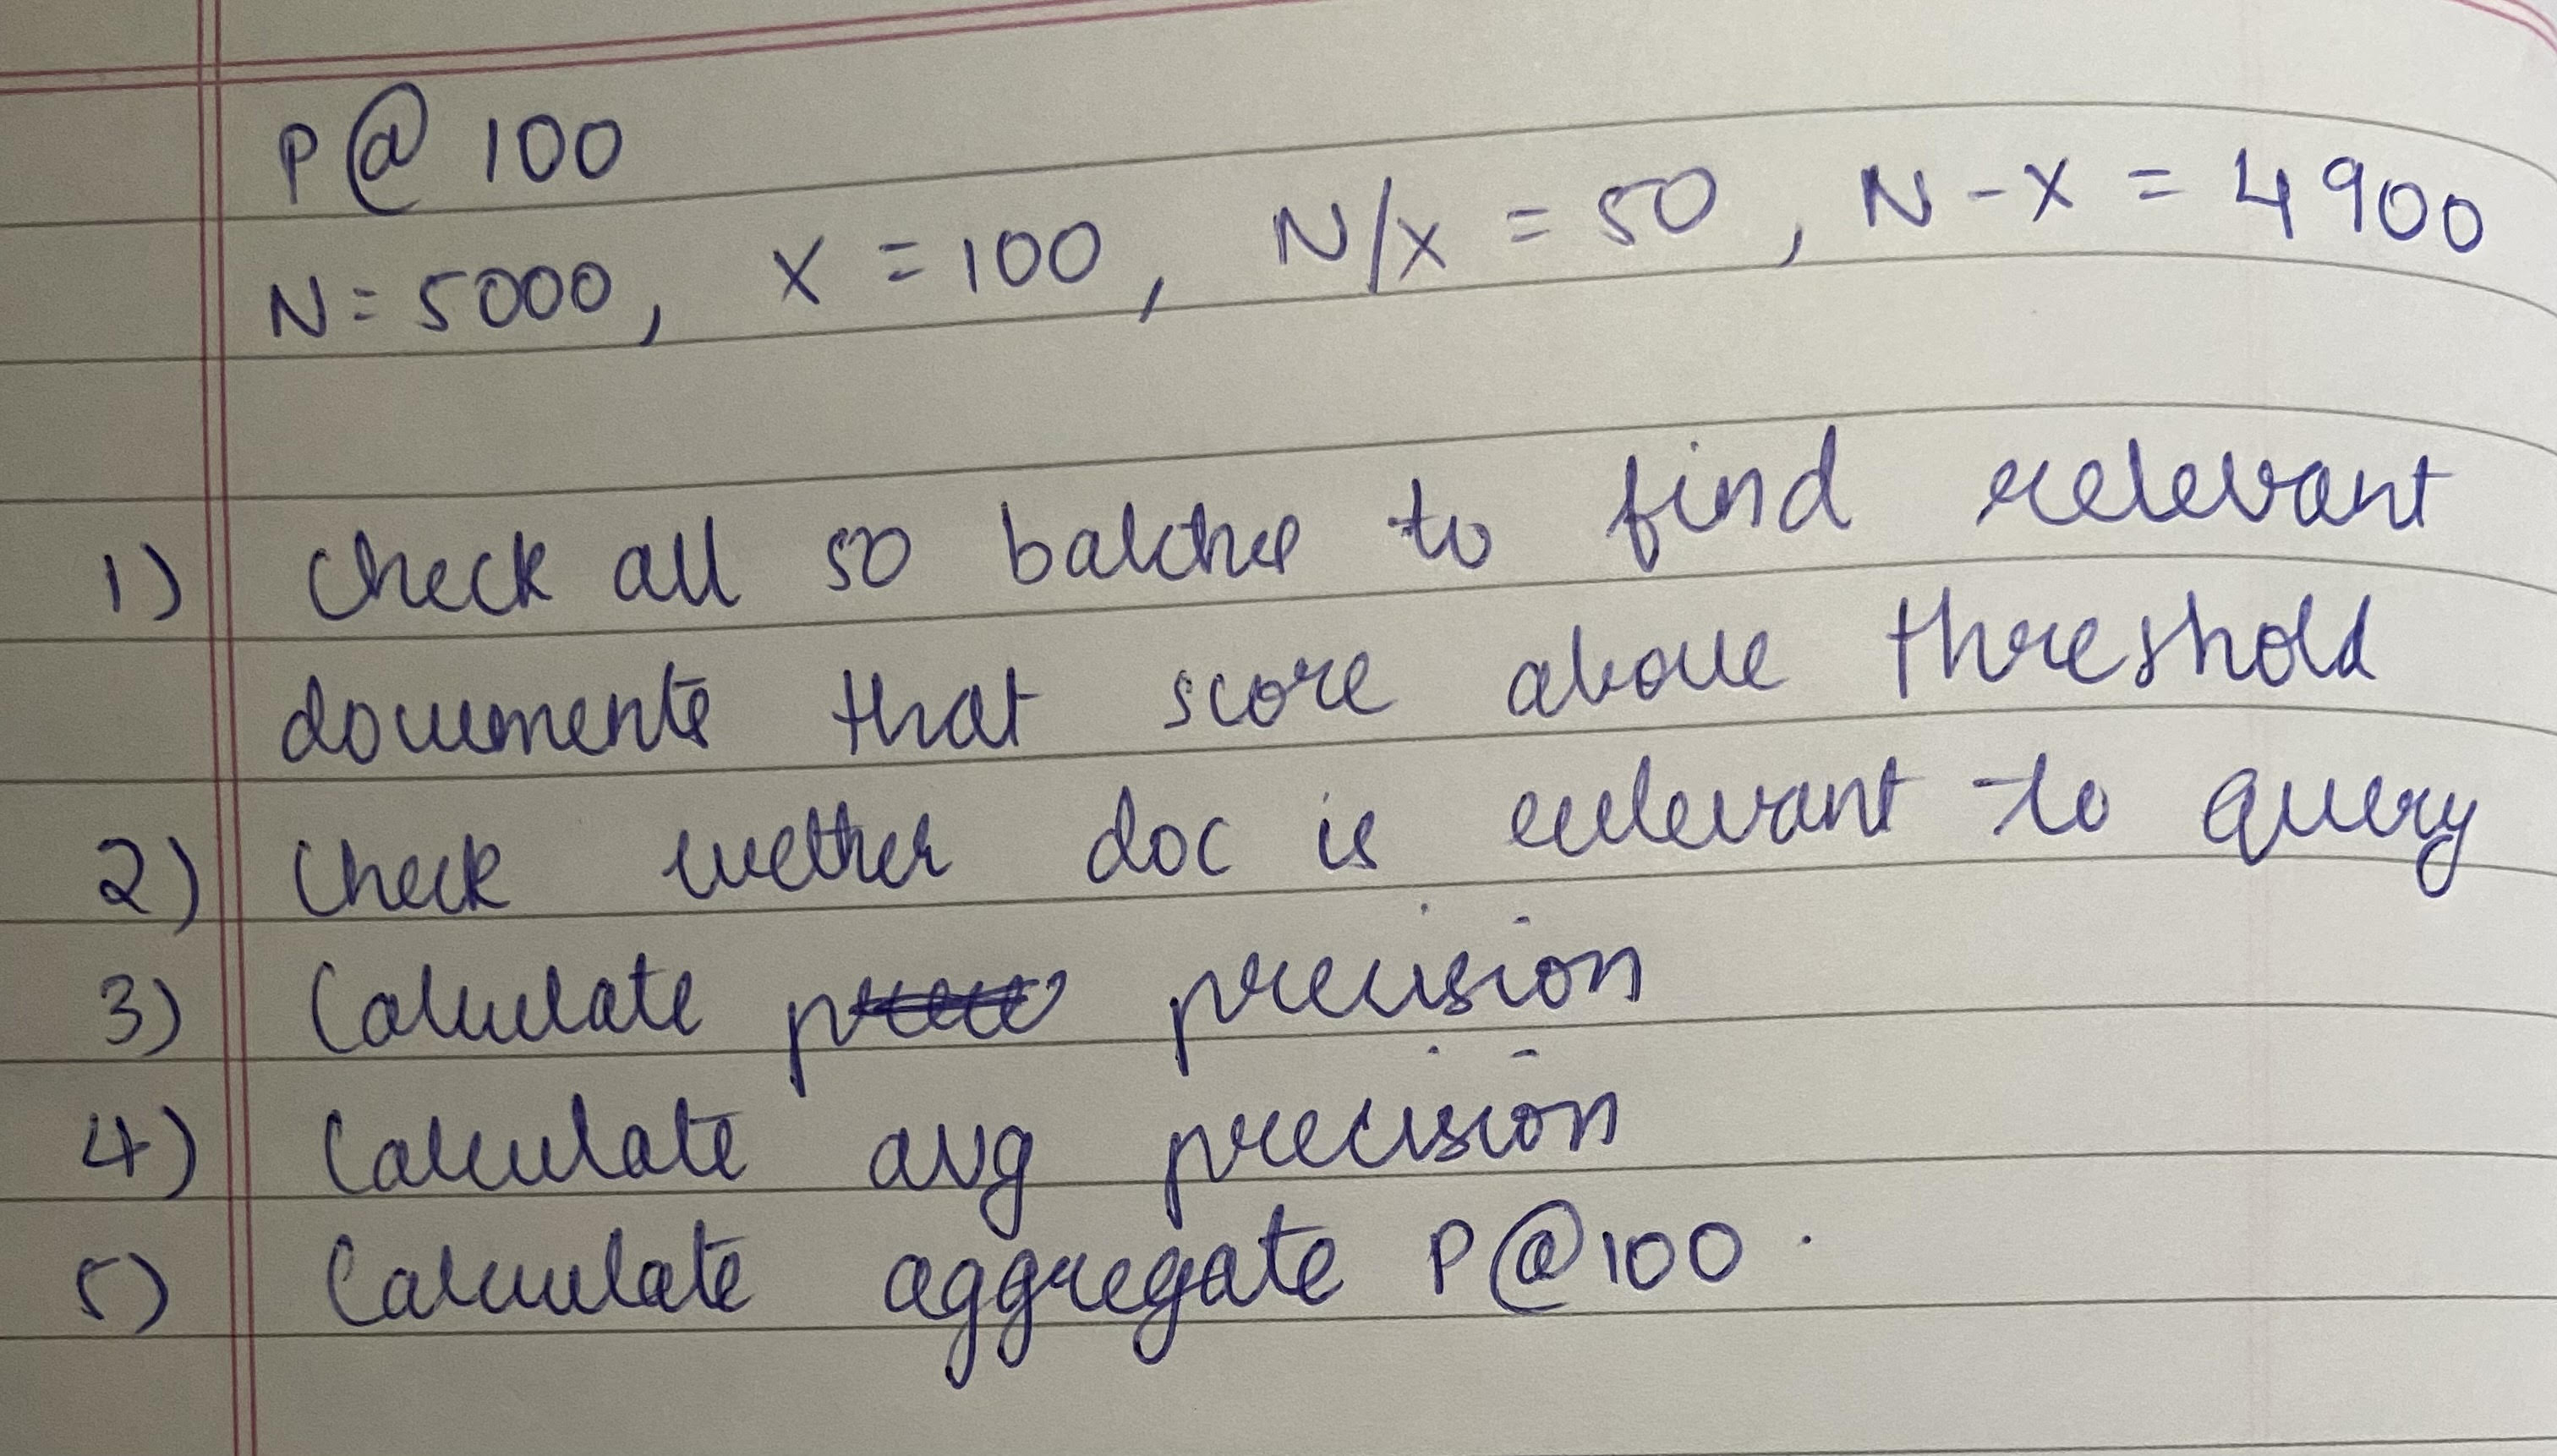 P@ 100
N=5000, X = 100, N/X = 50, N-X = 4900
1) Check all 50 batches to find relevant
documents that score above threshold
2) Check wether doc is relevant to query
3) Calculate precision
4) Calculate avg precision
5) Calculate aggregate P@100.